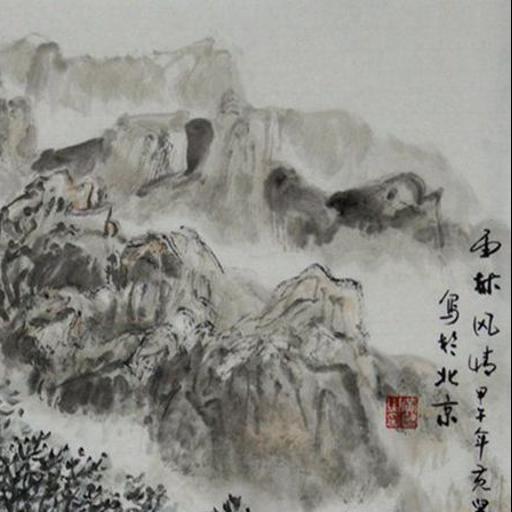 雨林风情甲午年亮
写于北京